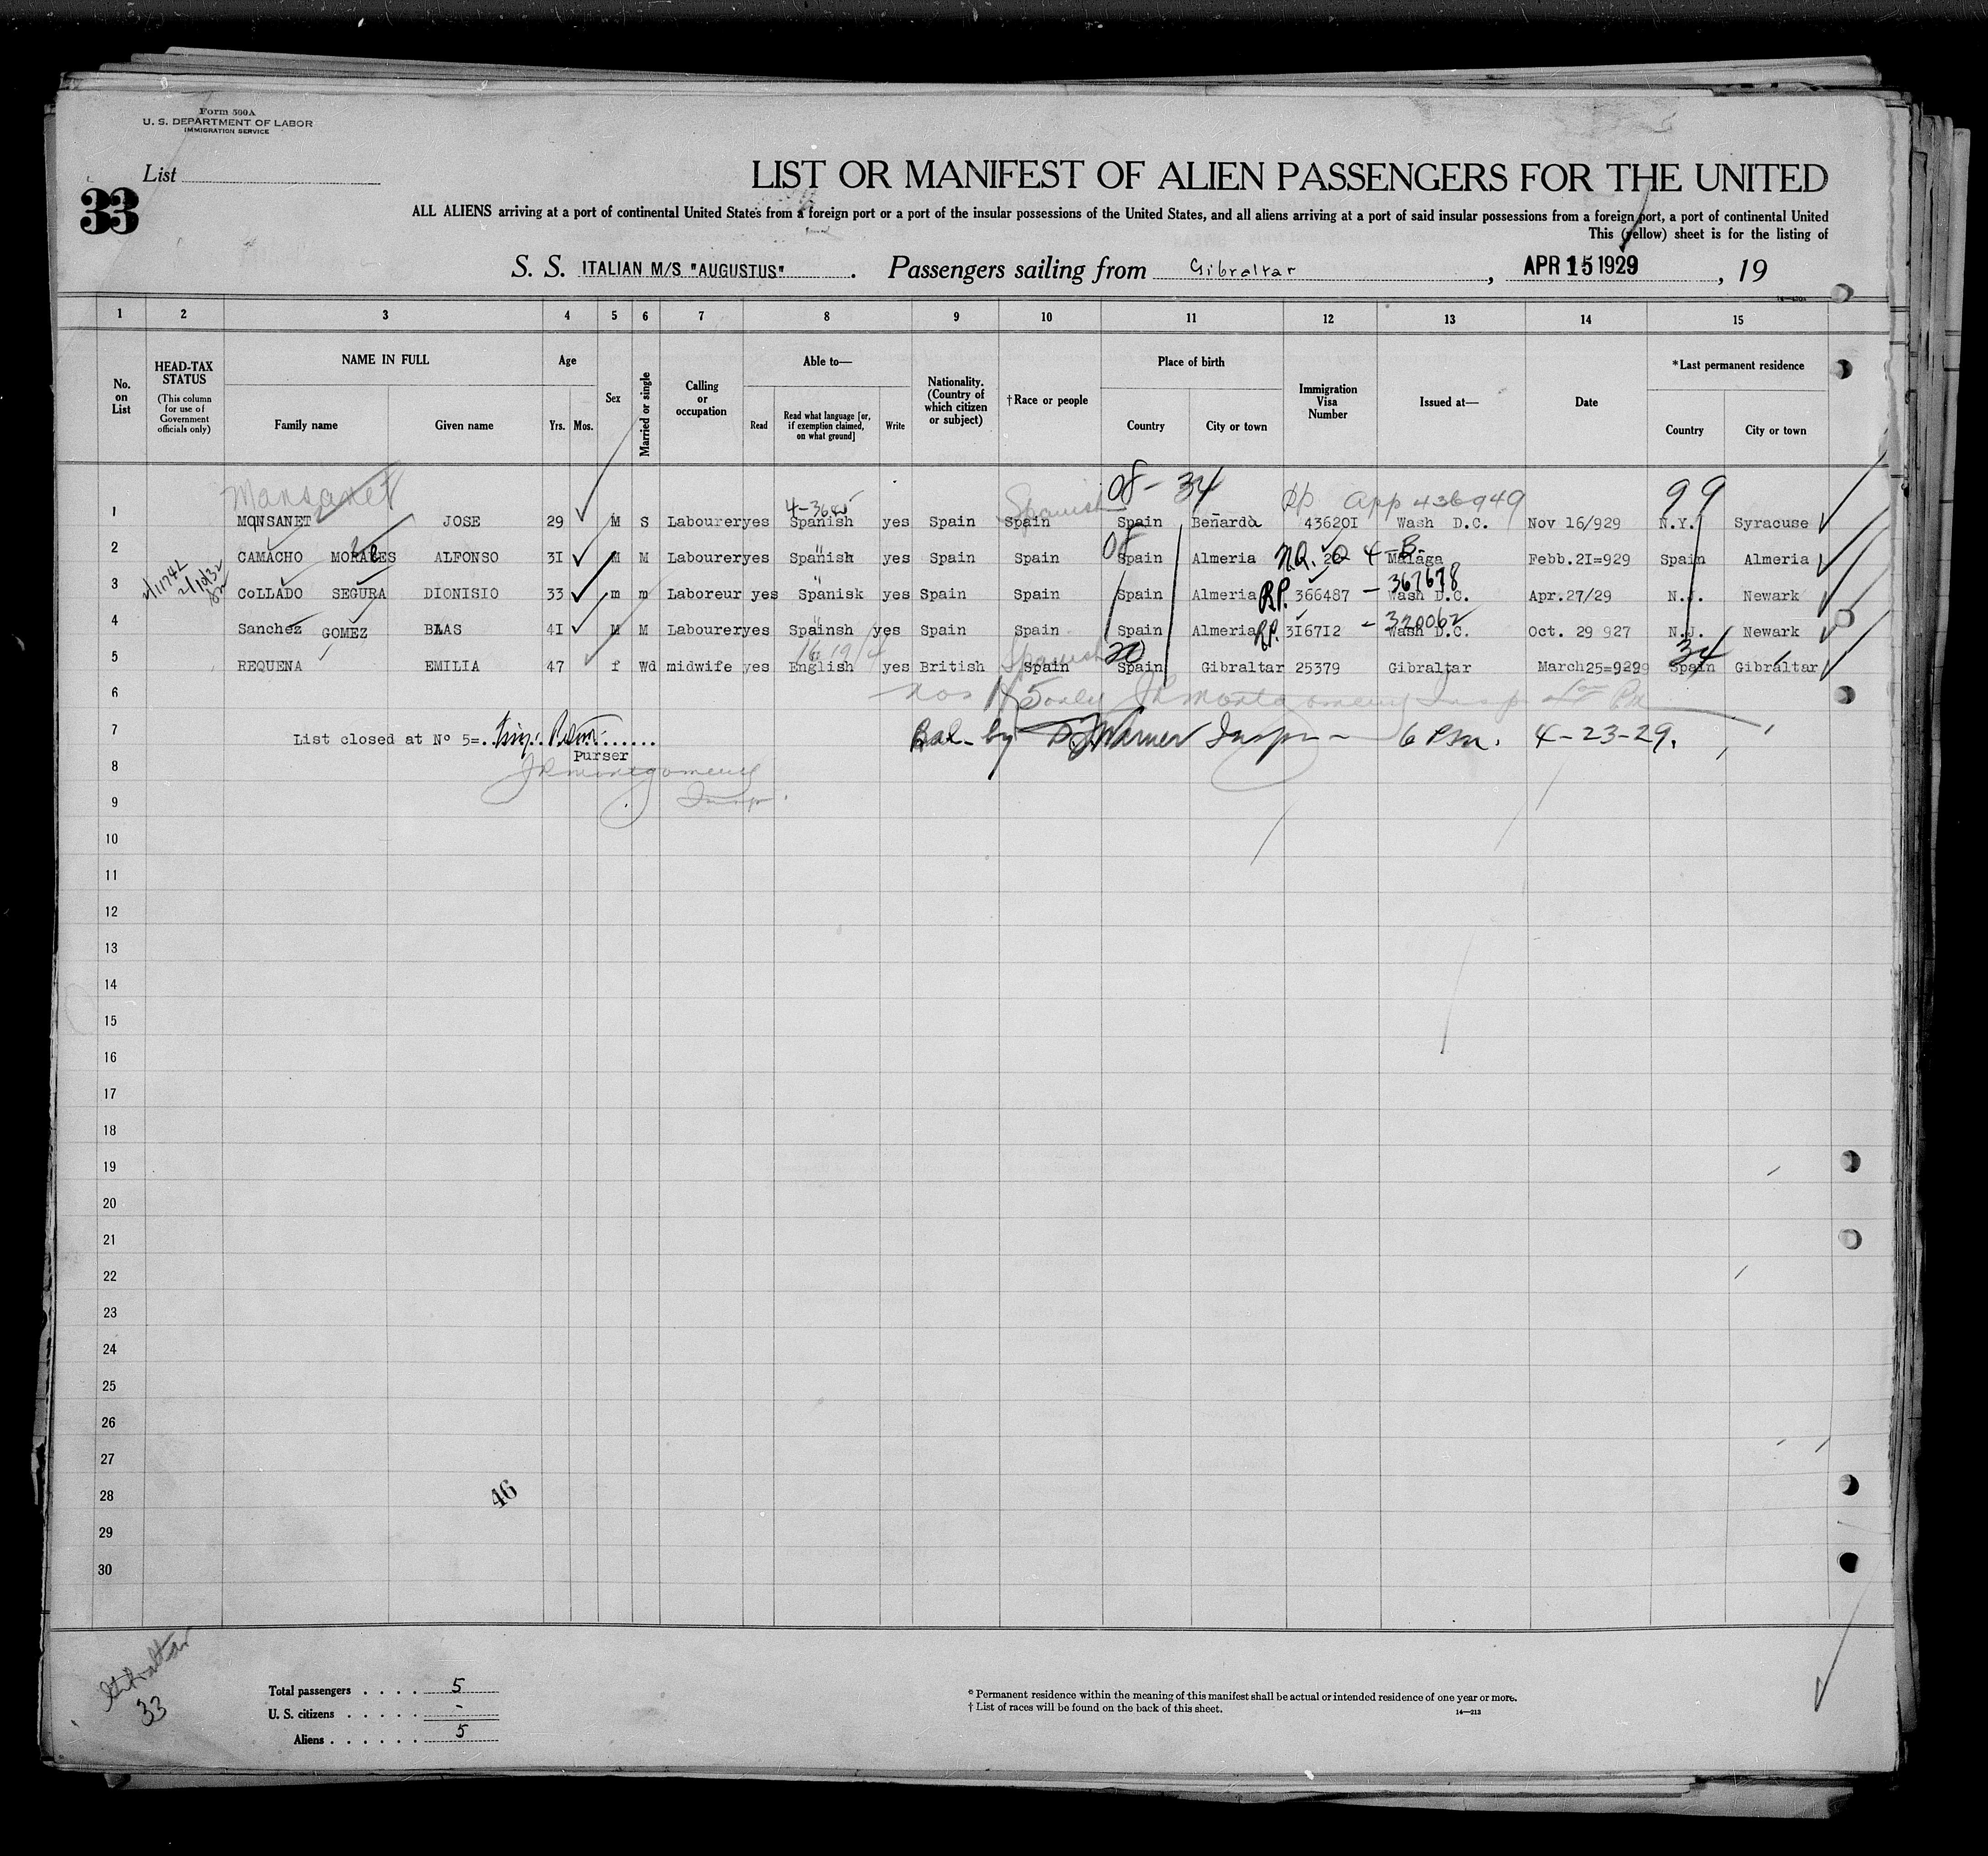 Form 500A
U. S. DEPARTMENT OF LABOR
IMMIGRATION SERVICE
List
33
LIST OR MANIFEST OF ALIEN PASSENGERS FOR THE UNITED
ALL ALIENS arriving at a port of continental United States from a foreign port or a port of the insular possessions of the United States, and all aliens arriving at a port of said insular possessions from a foreign port, a port of continental United
This (yellow) sheet is for the listing of
S. S. ITALIAN M/S "AUGUSTUS" . Passengers sailing from Gibraltar , APR 15 1929 , 19
1 2 3 4 5 6 7 8 9 10 11 12 13 14 15
No. on List
HEAD-TAX STATUS (This column for use of Government officials only)
NAME IN FULL
Family name Given name
Age
Yrs. Mos.
Sex
Married or single
Calling or occupation
Able to—
Read
Read what language [or, if exemption claimed, on what ground]
Write
Nationality. (Country of which citizen or subject)
†Race or people
Place of birth
Country City or town
Immigration Visa Number
Issued at—
Date
*Last permanent residence
Country City or town
Mansanet Spanish 08 - 34 app 436949 99
1 MONSANET JOSE 29 M S Labourer yes Spanish yes Spain Spain Spain Benarda 436201 Wash D.C. Nov 16/929 N.Y. Syracuse
08 N.Q. 4 - B.
2 CAMACHO MORALES ALFONSO 31 M M Labourer yes Spanish yes Spain Spain Spain Almeria Malaga Febb.21=929 Spain Almeria
R.P. - 367678
3 CoLLADO SEGURA DIONISIO 33 m m Laboreur yes Spanisk yes Spain Spain Spain Almeria 366487 Wash D.C. Apr.27/29 N.J. Newark
R.P. - 320062
4 Sanchez GOMEZ BLAS 41 M M Labourer yes Spainsh yes Spain Spain Spain Almeria 316712 Wash D.C. Oct. 29 927 N.J. Newark
Spanish 20 34
5 REQUENA EMILIA 47 f Wd midwife yes English yes British Spain Spain Gibraltar 25379 Gibraltar March25=929 Spain Gibraltar
6
7 List closed at No 5=
Purser
Bal. by Warner Insp - 6 P.M. 4-23-29.
8 JR Montgomery
9 Insp.
10
11
12
13
14
15
16
17
18
19
20
21
22
23
24
25
26
27
28
46
29
30
Gibraltar
33
Total passengers . . . . 5
U. S. citizens . . . . . -
Aliens . . . . . . 5
* Permanent residence within the meaning of this manifest shall be actual or intended residence of one year or more.
† List of races will be found on the back of this sheet.
14—213